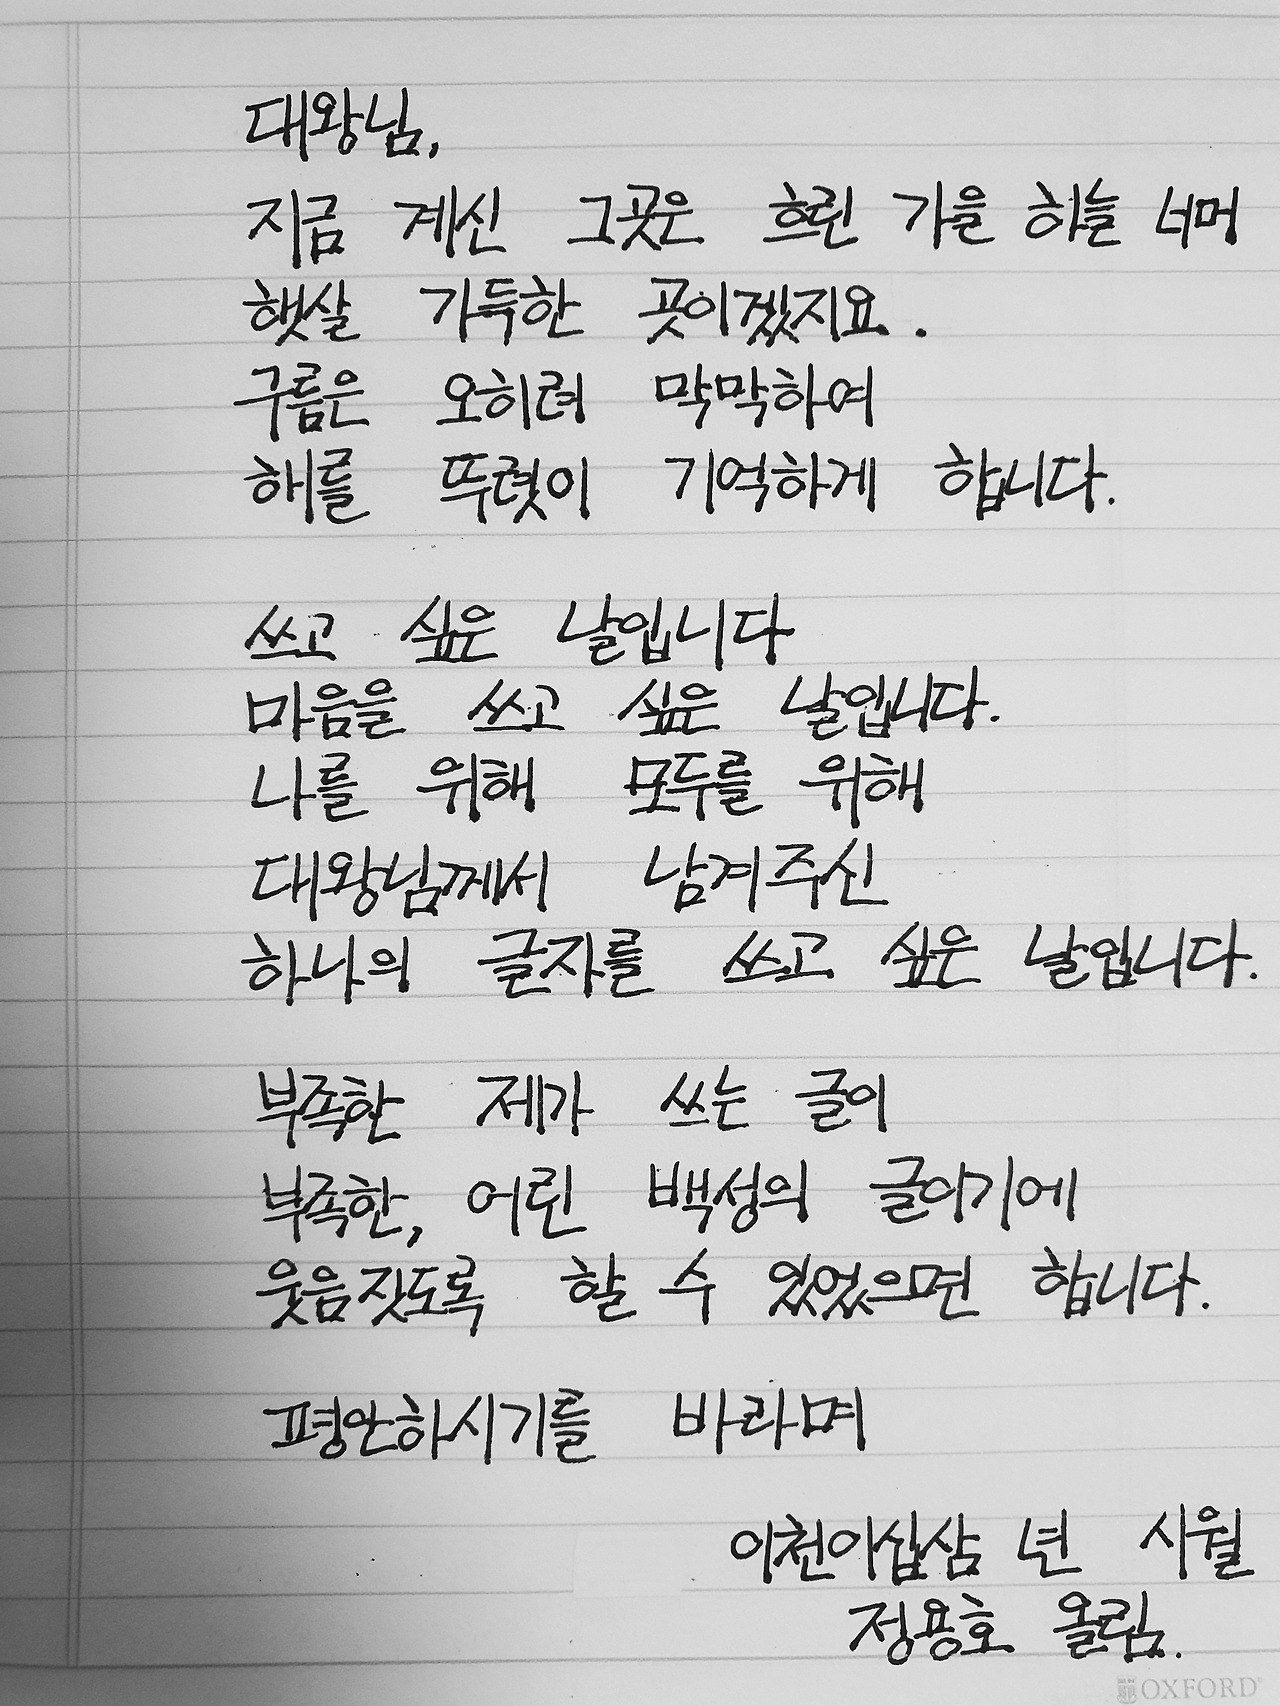 대왕님,
지금 계신 그곳은 흐린 가을 하늘 너머
햇살 가득한 곳이겠지요.
구름은 오히려 막막하여
해를 뚜렷이 기억하게 합니다.
쓰고 싶은 날입니다
마음을 쓰고 싶은 날입니다.
나를 위해 모두를 위해
대왕님께서 남겨주신
하나의 글자를 쓰고 싶은 날입니다.
부족한 제가 쓰는 글이
부족한, 어린 백성의 글이기에
웃음짓도록 할 수 있었으면 합니다.
평안하시기를 바라며
이천이십삼 년 시월
정용호 올림.
OXFORD